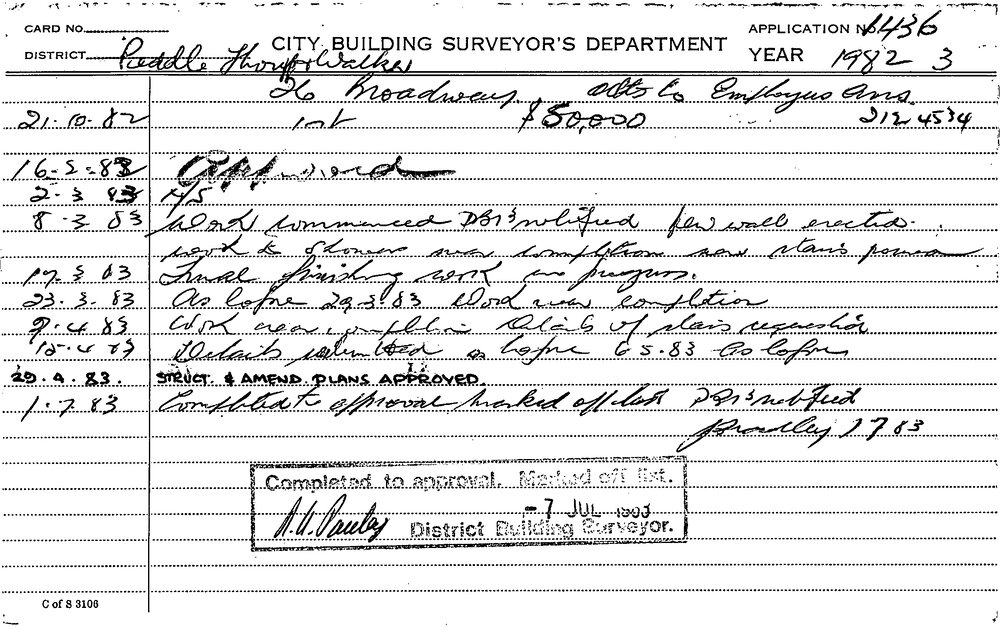 CARD No.
CITY BUILDING SURVEYOR'S DEPARTMENT
APPLICATION No. 1436
DISTRICT
Peddle Thorp & Walker
YEAR 1982 3
26 Broadway alts to Employees Am.
21.10.82 Int $50,000 212 4534
16.2.83 Approved
2.3.83 N/S
8.3.83 Work commenced DBI's notified few wall erected.
work to Showers near completion new stairs
17.3.83 Final finishing work in progress.
23.3.83 As before 29.3.83 Work near completion
4.83 Work near completion Details of stairs
15.4.83 Details submitted as before 6.5.83 As before
29.4.83. STRUCT. & AMEND. PLANS APPROVED.
1.7.83 Completed to approval marked off list DBI's notified
Bradley 1 7 83
Completed to approval. Marked off list.
-7 JUL 1983
District Building Surveyor.
C of S 3106